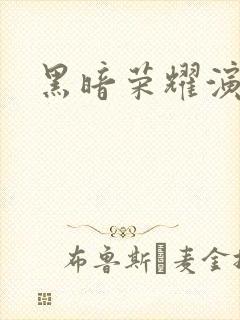 黑暗荣耀演
布鲁斯麦金